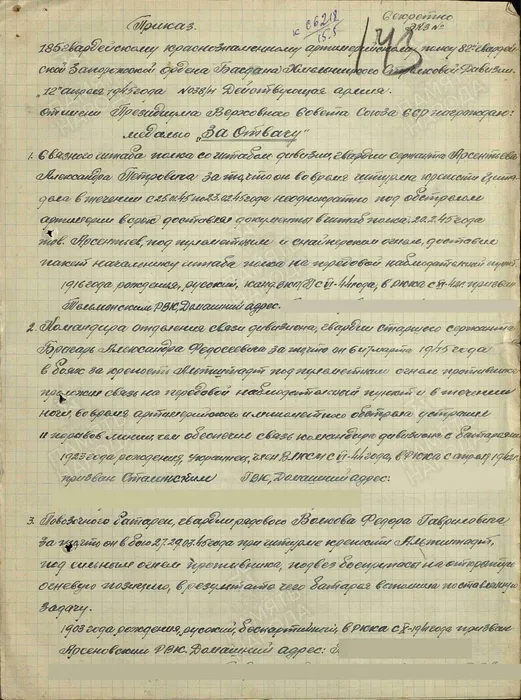 Приказ.
Секретно
к с6218
15.5
Экз №
143
185 гвардейскому краснознаменному артиллерийскому полку 82й гвардей-
ской Запорожской ордена Богдана Хмельницкого Стрелковой Дивизии.
"12" апреля 1945 года №08/н Действующая армия.
От имени Президиума Верховного Совета Союза ССР награждаю:
медалью "За Отвагу"
1. Связного штаба полка со штабом дивизии, гвардии сержанта Арсентьева
Александра Петровича за то, что он во время штурма крепости Цита-
дола в течении с 25.01.45 по 23.02.45 года неоднократно под обстрелом
артиллерии врага доставлял документы в штаб полка. 20.2.45 года
тов. Арсентьев, под пулеметным и снайперским огнем, доставил
пакет начальнику штаба полка на передовой наблюдательный пункт.
1916 года рождения, русский, канд. ВКП(б) с 44 года, в РККА с 41г. призван
Тельмонским РВК, Домашний адрес:
2. Командира отделения связи дивизиона, гвардии старшего сержанта
Брагарь Александра Федосеевича за то, что он в марте 1945 года
в боях за крепость Альтштадт под пулеметным огнем противника
проложил связь на передовой наблюдательный пункт и в течении
ночи, во время артиллерийского и минометного обстрела устранил
11 порывов линии, чем обеспечил связь командира дивизиона с батареями
1923 года рождения, украинец, член ВЛКСМ с 44 года, в РККА с апреля призван Сталинским ГВК, Домашний адрес:
3. Повозочного батареи, гвардии рядового Волкова Федора Гавриловича
за то, что он в бою 27-29.03.45 года при штурме крепости Альтштадт,
под сильным огнем противника, подвез боеприпасы на открытую
огневую позицию, в результате чего батарея выполнила поставленную
задачу.
1903 года рождения, русский, беспартийный, в РККА с 1941 года призван
Арсеновским РВК. Домашний адрес:
ПАМЯТЬ НАРОДА